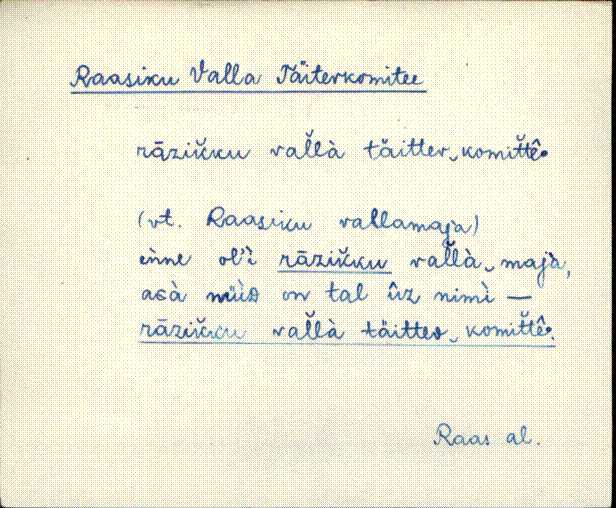 Raasiku Valla Täiterkomitee
rāzik̆ku val̆là täitter‿komit̆tê•
(vt. Raasiku vallamaja)
enne ol'i rāzik̆ku val̆là‿maja,
asà müiD on tal ûz nimì —
rāzik̆ku val̆là täitter‿komit̆tê•.
Raas al.